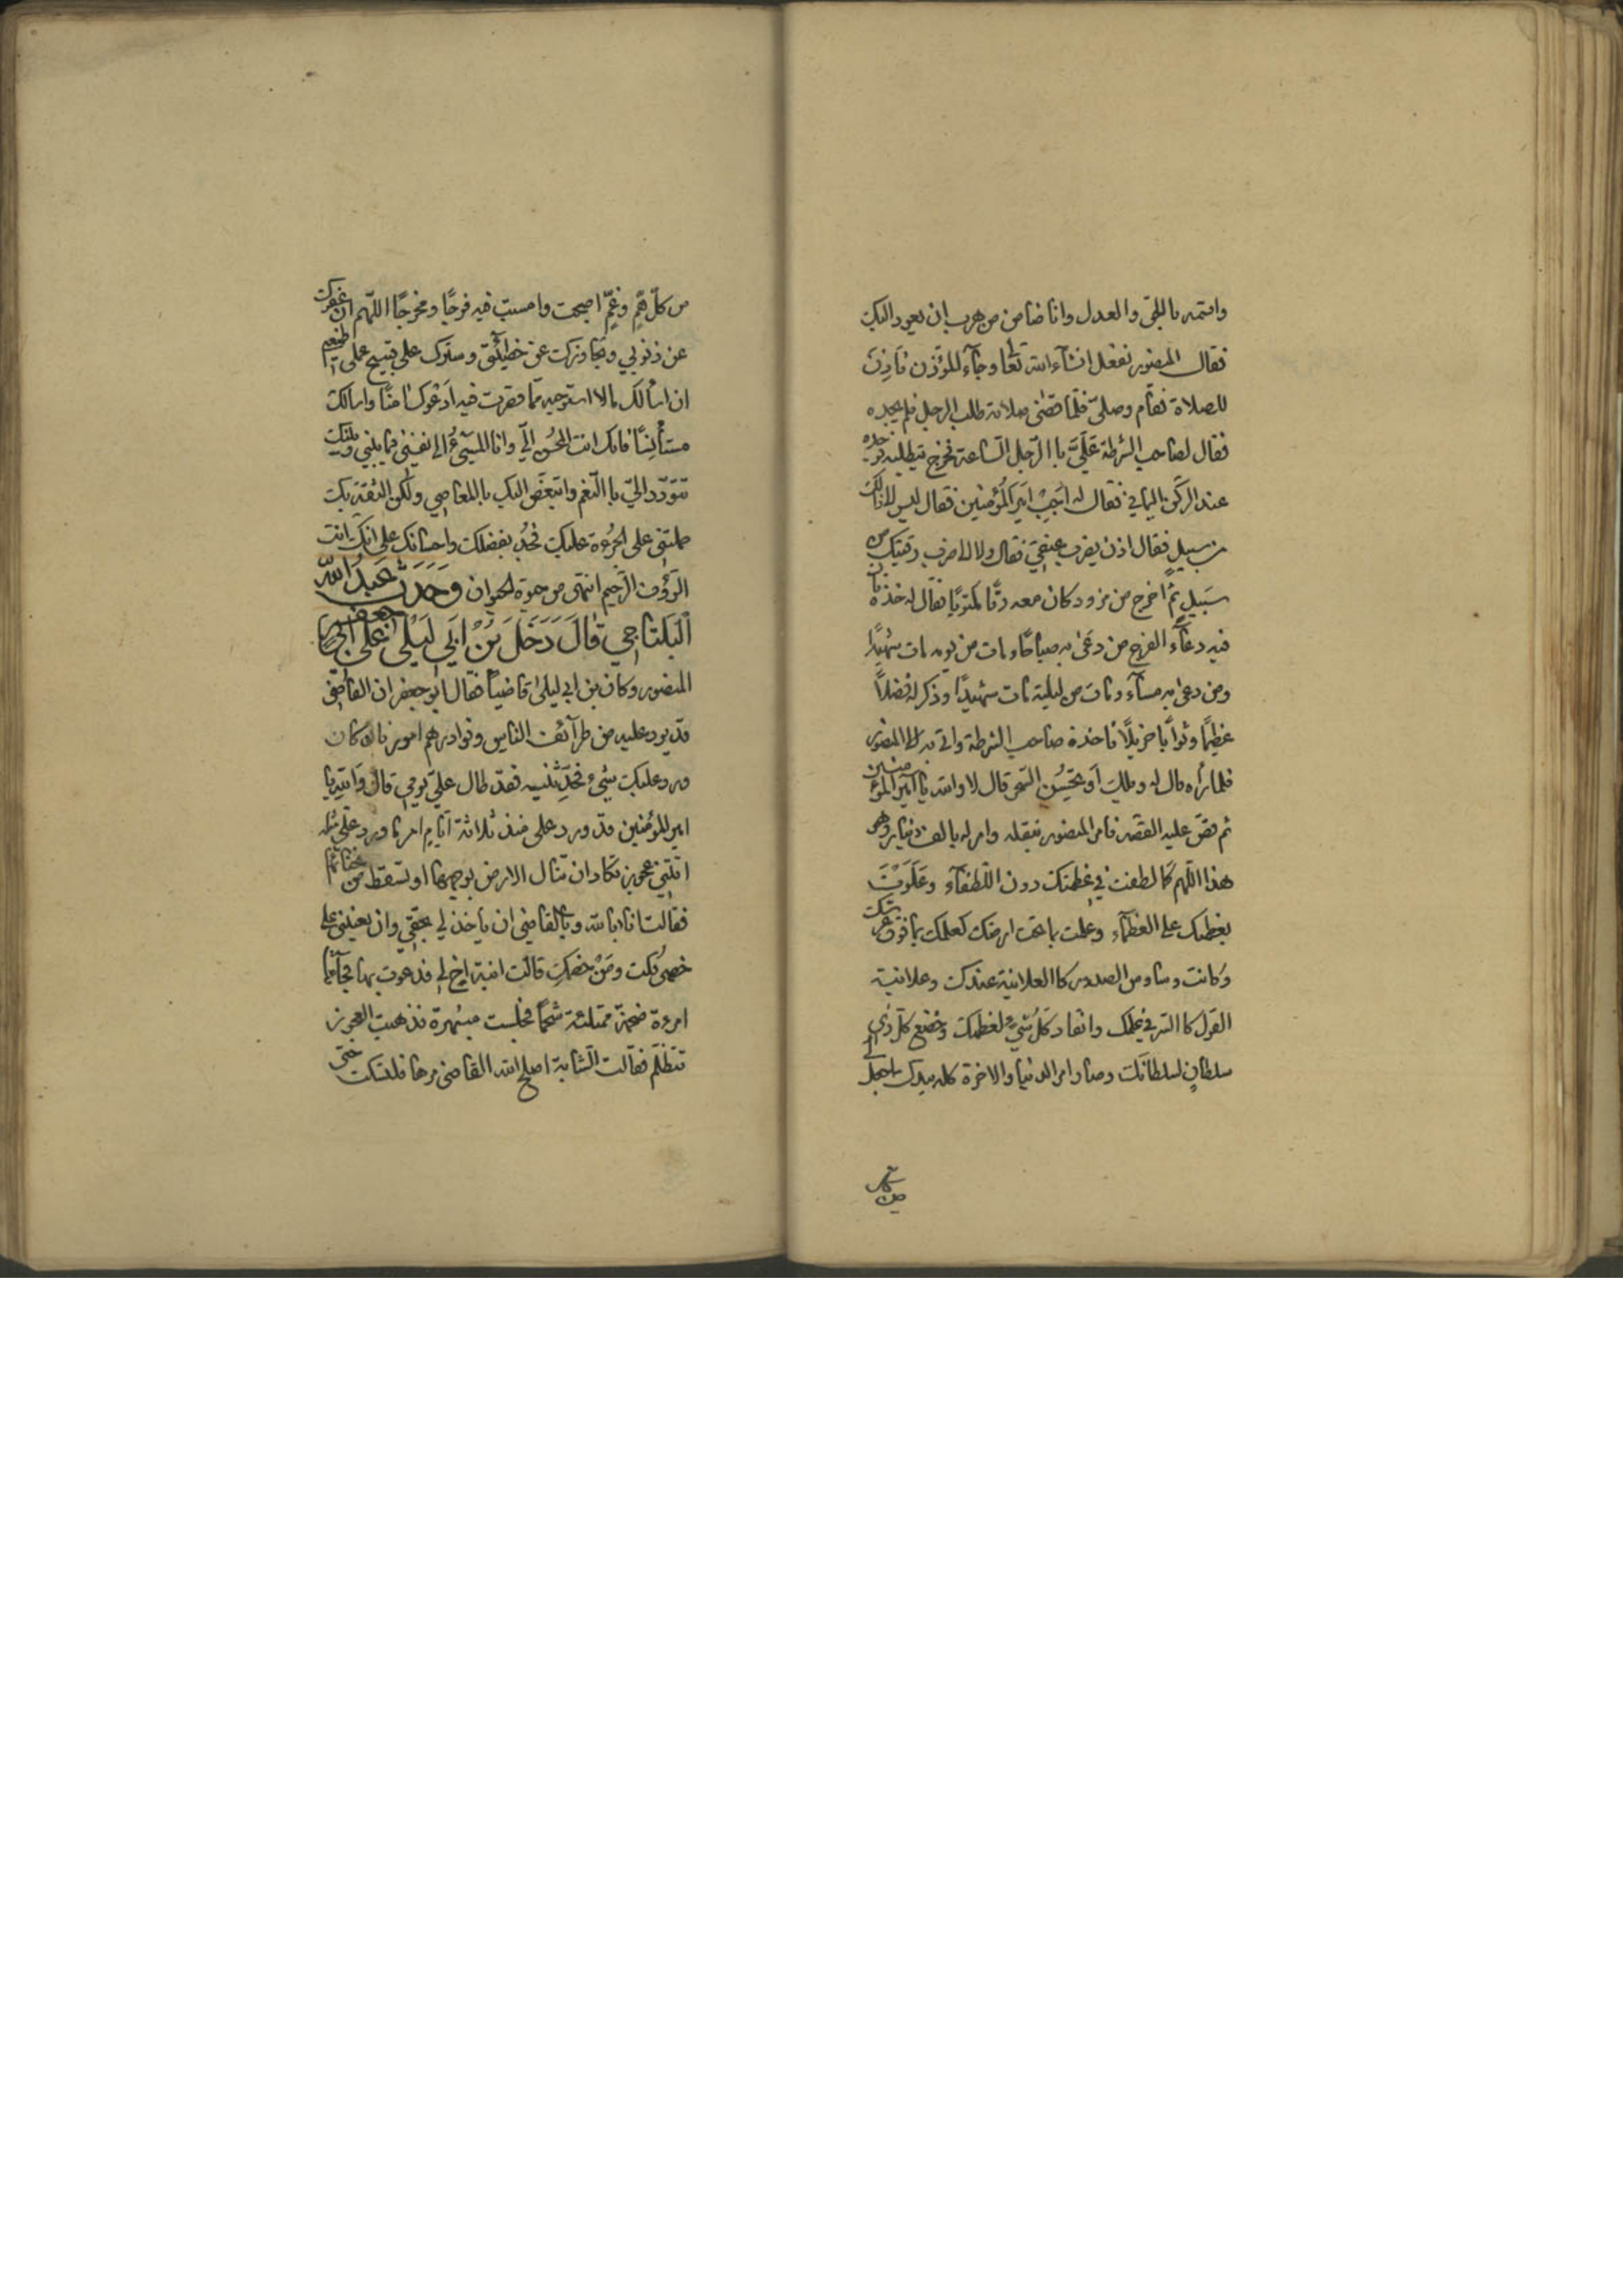 واقتمه بالحق والعدل وانا ضامن من هرب ان يعود اليك
فقال المنصور نفعل انشآء الله تعا وجآء المؤذن فاذن
للصلاة فقام وصلى فلما قضى صلاته طلب الرجل فلم يجده
فقال لصاحب الشرطة عليَّ باالرجل الساعة فخرج يتطلبه فوجده
عند الركن اليماني فقال له اجب امير المؤمنين فقال ليس الى ذالك
من سبيل فقال اذن يضرب عنقي فقال ولا الى ضرب رقبتك من
سبيل ثم اخرج من مزود كان معه رقًا مكتوبًا فقال له خذه فان
فيه دعآء الفرج من دعى به صباحًا ومات من يومه مات شهيدًا
ومن دعى به مسآء ومات من ليلته مات شهيدًا وذكر له فضلاً
عظيمًا وثوابًا جزيلًا فاخذه صاحب الشرطة واتى به الى المنصور
فلما رأه قال له ويلك أو تحسن السحر قال لا والله يا امير المؤمنين
ثم قصَّ عليه القصة فامر المنصور بنقله وامر له بالف دينار وهو
هذا اللهم كما لطفت في عظمتك دون اللطفآء وعلوت
بعظمتك على العظمآء وعلمت ما تحت ارضك كعلمك بما فوق عرشك
وكانت وساوس الصدور كاالعلانية عندك وعلانية
القول كاالسر في علمك وانقاد كل شيء لعظمتك وخضع كل ذي
سلطان لسلطانك وصار امر الدنيا والاخرة كله بيدك اجعل لي
من كل همٍّ وغمٍّ اصبحت وامسيت فيه فرجًا ومخرجًا اللهم ان عفوك
عن ذنوبي وتجاوزك عن خطيئتي وسترك على قبيح عملي اطمعني
ان اسألك مالا استوجبه مما قصرت فيه ادعوك امنًا واسالك
مستأنسًا فانك انت المحسن اليَّ وانا المسيئ الى نفسي فيما بيني وبينك
تتودد اليّ باالنعم واتبغض اليك باالمعاصي ولكن الثقة بك
حملتني على الجرءة عليك فجُد بفضلك واحسانك على انك انت
الرؤوف الرحيم انتهى من حيوة الحيوان وَحَدَّثَ عبدُ الله
البلتاجي قالَ دَخَلَ بنُ ابي ليلى على ابي جعفر
المنصور وكان بن ابي ليلى قاضيًا فقال ابو جعفر ان القاضي
قد يرد عليه من طرآئف الناس ونوادرهم امور فان كان
ورد عليك شيء فحدِّثنيه فقد طال عليّ يومي قال والله يا
امير المؤمنين قد ورد على منذ ثلاثة ايام امر ما ورد على مثله
اتتني عجوز تكاد ان تنال الارض بوجهها او تسقط من انحنائها
فقالت انا بالله وباالقاضي ان ياخذ لي بحقي وان يعينني على
خصمى قلت ومَنْ خصمكِ قالت ابنة اخ لي فدعوت بها فجآءت
امرءة ضخمة ممتلئة شحمًا فجلست منبهرة فذهبت العجوز
تتظلم فقالت الشابة اصلح الله القاضى مرها فلتسكت حتى